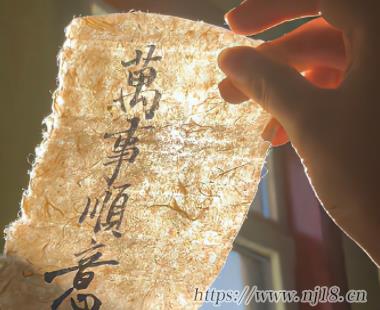 萬事順意
https://www.njl8.cn